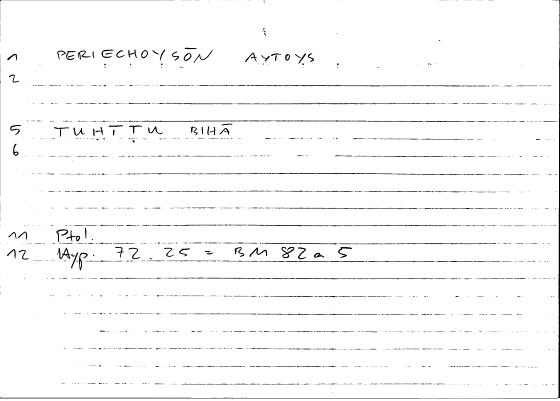 1 PERIECHOYSŌN AYTOYS
2
5 TUḤĪṬU BIHĀ
6
11 Ptol.
12 Hyp. 72.25 = BM 82a5